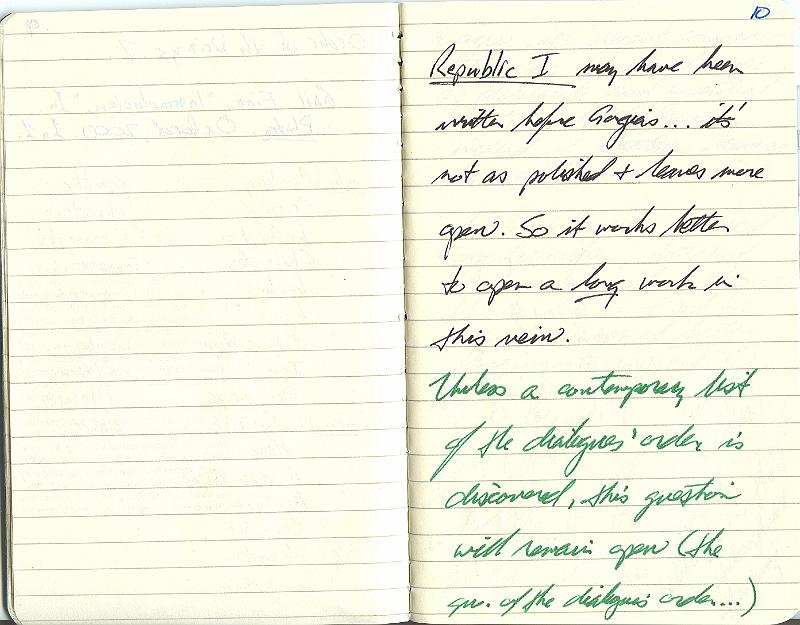 10
Republic I may have been
written before Gorgias... it's
not as polished + leaves more
open. So it works better
to open a long work in
this vein.
Unless a contemporary list
of the dialogues' order is
discovered, this question
will remain open (the
qu. of the dialogues' order...)